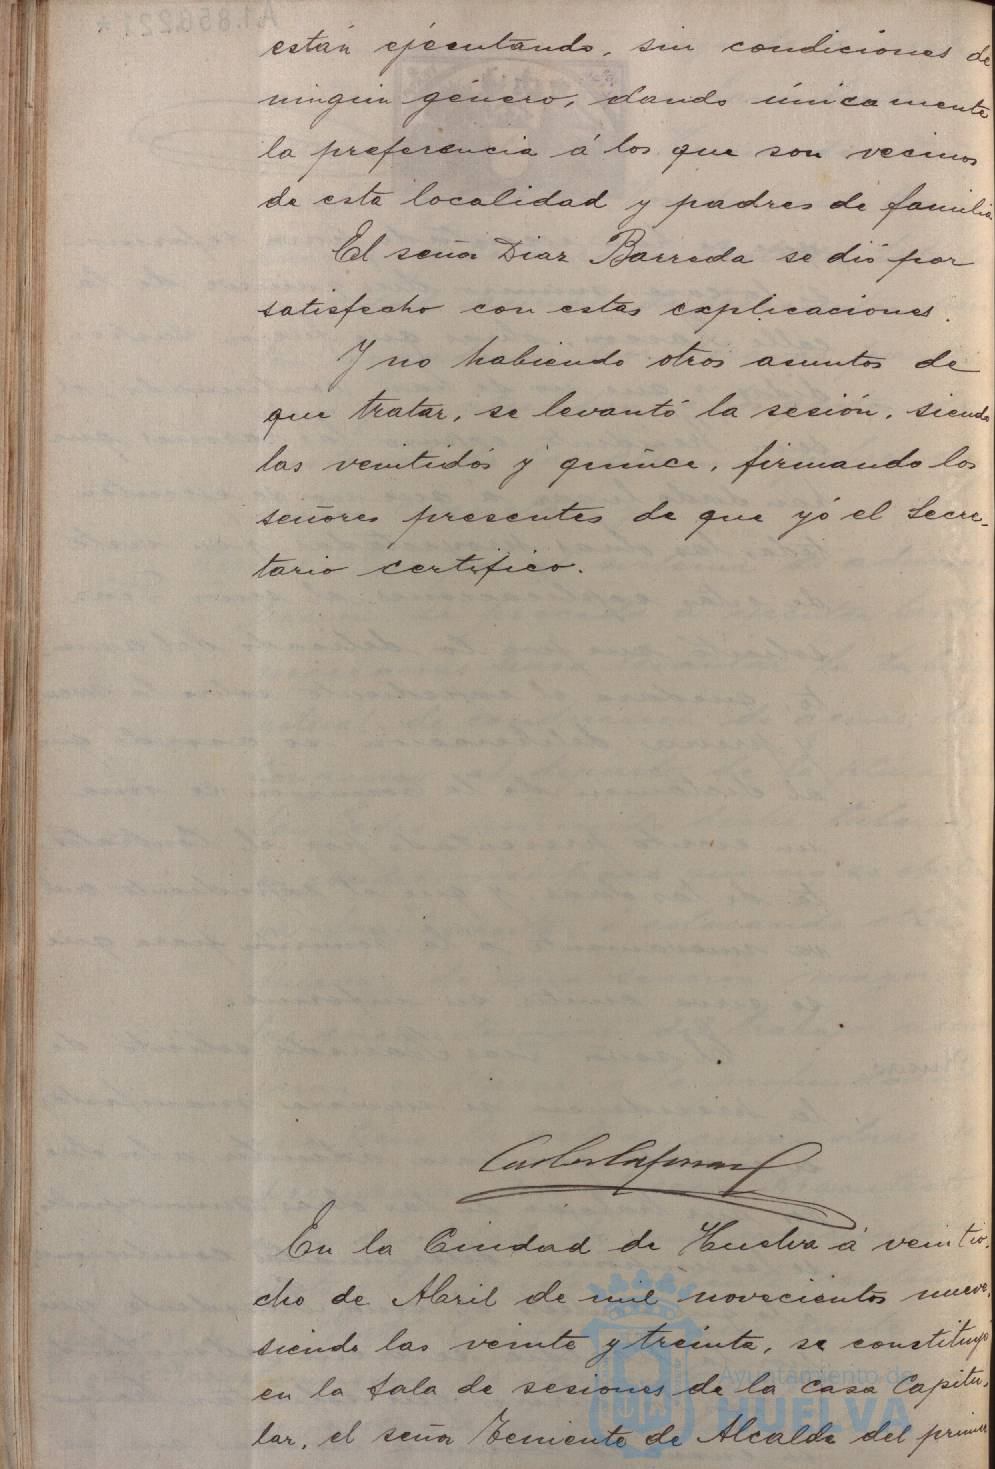 están ejecutando, sin condiciones de
ningún género, dando únicamente
la preferencia á los que son vecinos
de esta localidad y padres de familia.
El señor Diaz Barreda se dió por
satisfecho con estas explicaciones.
Y no habiendo otros asuntos de
que tratar, se levantó la sesión, siendo
las veintidós y quince, firmando los
señores presentes de que yó el Secre-
tario certifico.
En la Ciudad de Huelva á veintio-
cho de Abril de mil novecientos nueve,
siendo las veinte y treinta, se constituyó
en la Sala de sesiones de la Casa Capitu-
lar, el señor Teniente de Alcalde del primer
Ayuntamiento de
HUELVA